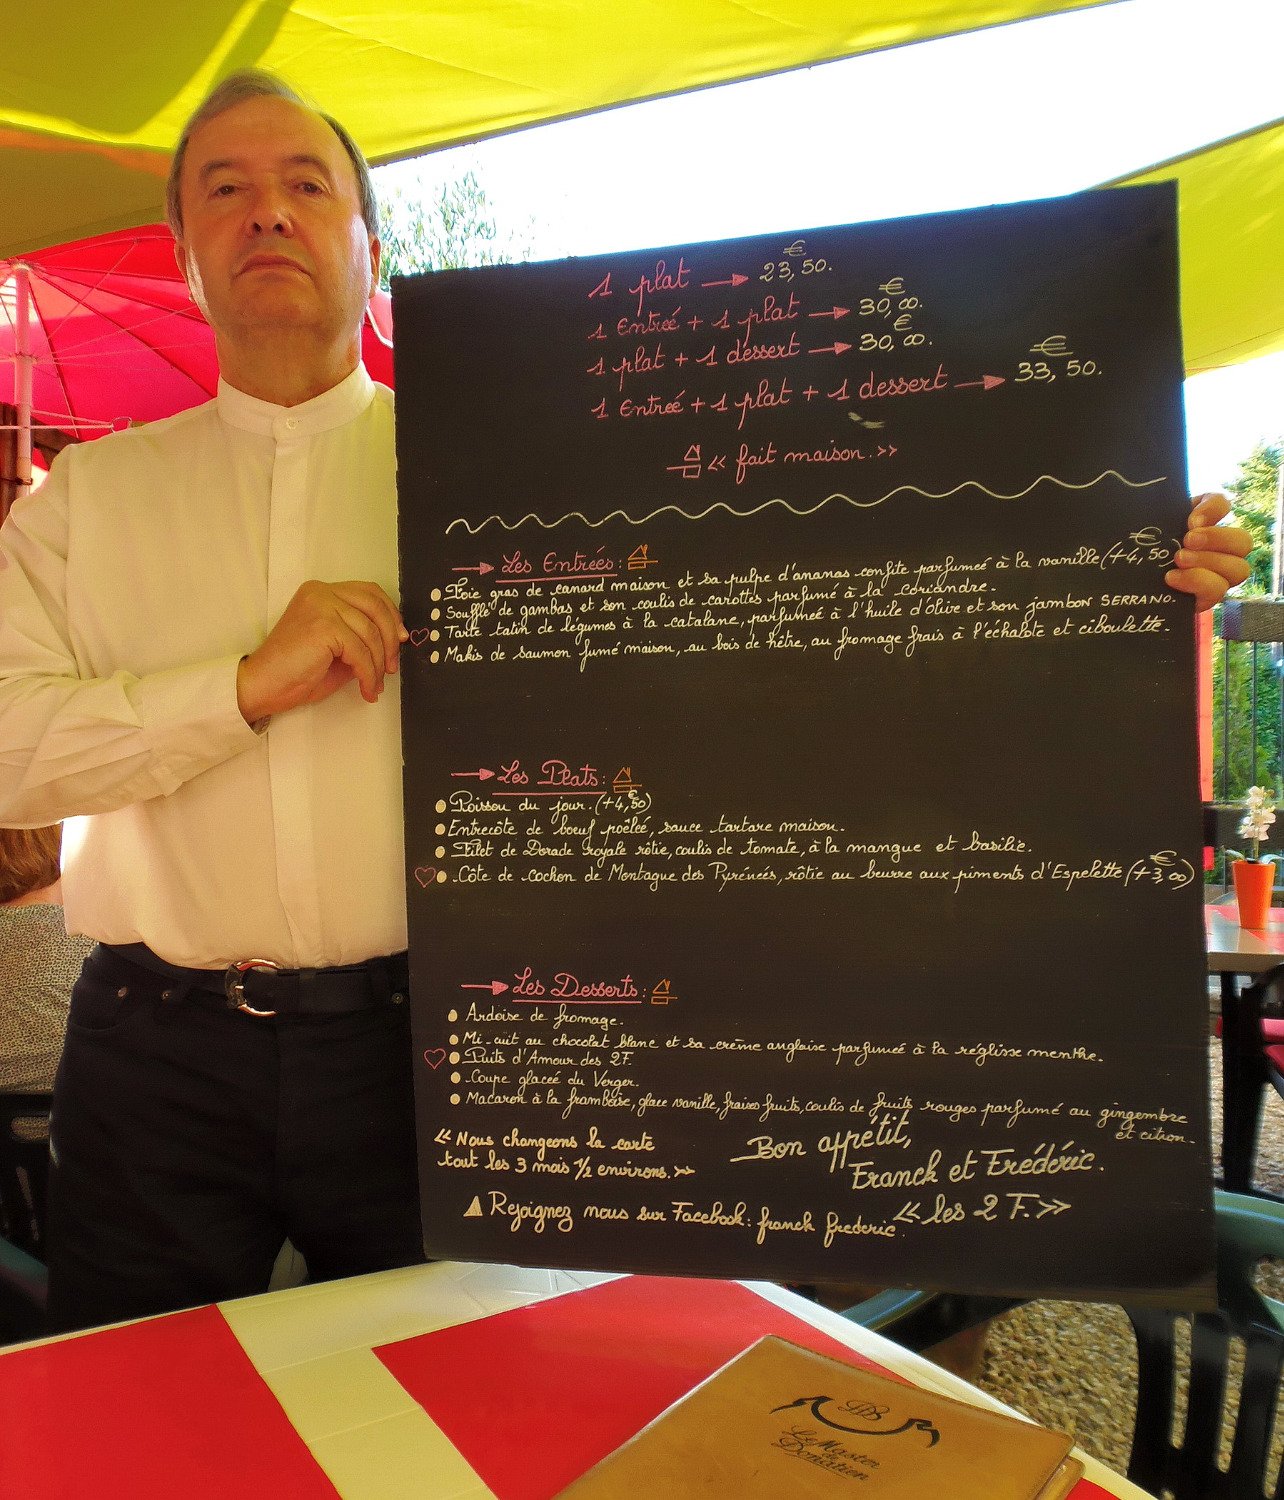 1 plat → 23,50. €
1 Entreé + 1 plat → 30,00. €
1 plat + 1 dessert → 30,00. €
1 Entreé + 1 plat + 1 dessert → 33,50. €
« fait maison. »
→ Les Entreés:
• Foie gras de canard maison et sa pulpe d'ananas confite parfumeé à la vanille (+4,50 €)
• Soufflé de gambas et son coulis de carottes parfumé à la coriandre.
• Tarte tatin de légumes à la catalane, parfumeé à l'huile d'olive et son jambon SERRANO.
• Makis de saumon fumé maison, au bois de hêtre, au fromage frais à l'échalote et ciboulette.
→ Les Plats:
• Poisson du jour. (+4,50 €)
• Entrecôte de boeuf poêleé, sauce tartare maison.
• Filet de Dorade royale rôtie, coulis de tomate, à la mangue et basilic.
• Côte de cochon de Montagne des Pyrénéés, rôtie au beurre aux piments d'Espelette (+3,00 €)
→ Les Desserts:
• Ardoise de fromage.
• Mi-cuit au chocolat blanc et sa crème anglaise parfumeé à la réglisse menthe.
• Puits d'Amour des 2F.
• Coupe glaceé du Verger.
• Macaron à la framboise, glace vanille, fraises fruits, coulis de fruits rouges parfumé au gingembre
et citron.
« Nous changeons la carte
tout les 3 mois 1/2 environs. »
Bon appétit,
Franck et Frédéric.
« les 2 F. »
Rejoignez nous sur Facebook: franck frederic.
Le Master
de
Donatien